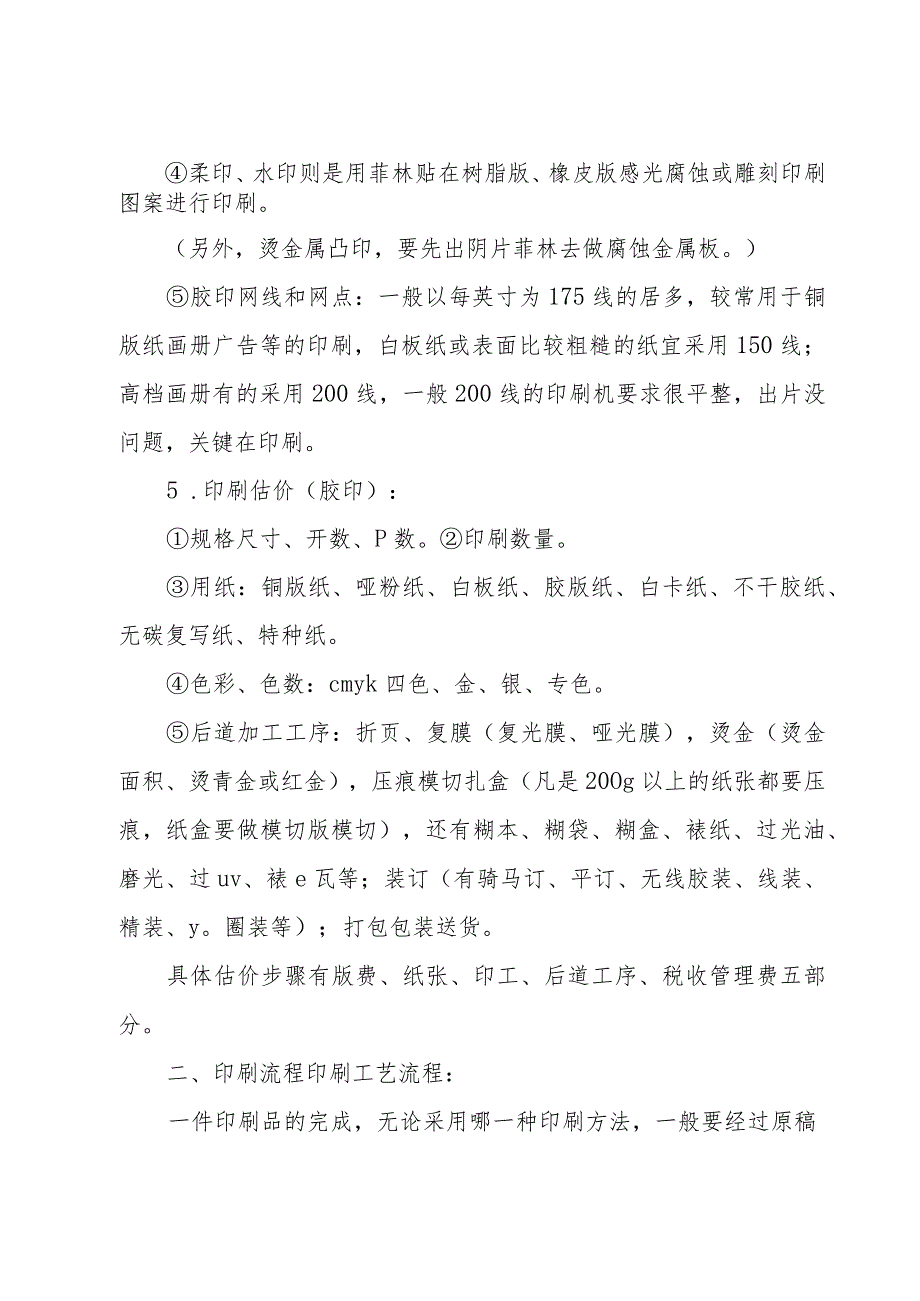 ④柔印、水印则是用菲林贴在树脂版、橡皮版感光腐蚀或雕刻印刷
图案进行印刷。
（另外，烫金属凸印，要先出阴片菲林去做腐蚀金属板。）
⑤胶印网线和网点：一般以每英寸为175线的居多，较常用于铜
版纸画册广告等的印刷，白板纸或表面比较粗糙的纸宜采用150线；
高档画册有的采用200线，一般200线的印刷机要求很平整，出片没
问题，关键在印刷。
5 .印刷估价（胶印）：
①规格尺寸、开数、P数。②印刷数量。
③用纸：铜版纸、哑粉纸、白板纸、胶版纸、白卡纸、不干胶纸、
无碳复写纸、特种纸。
④色彩、色数：cmyk四色、金、银、专色。
⑤后道加工工序：折页、复膜（复光膜、哑光膜），烫金（烫金
面积、烫青金或红金），压痕模切扎盒（凡是200g以上的纸张都要压
痕，纸盒要做模切版模切），还有糊本、糊袋、糊盒、裱纸、过光油、
磨光、过uv、裱e瓦等；装订（有骑马订、平订、无线胶装、线装、
精装、y。圈装等）；打包包装送货。
具体估价步骤有版费、纸张、印工、后道工序、税收管理费五部
分。
二、印刷流程印刷工艺流程：
一件印刷品的完成，无论采用哪一种印刷方法，一般要经过原稿